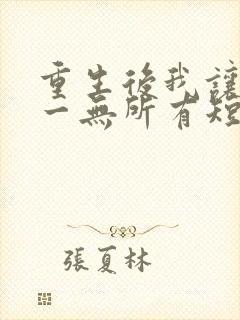 重生後我讓
一無所有短
張夏林